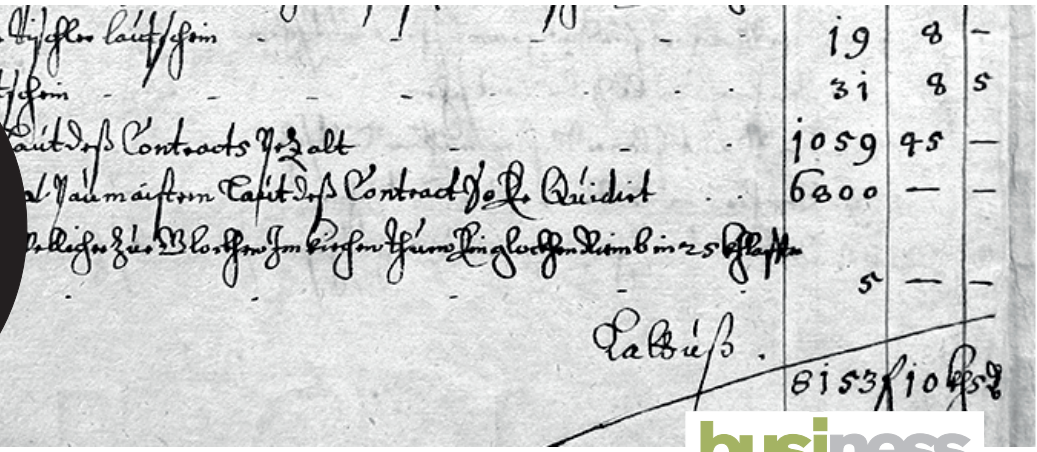 Tischler laút schein - - - 19 8 -
schein - - - 31 8 5
Laút deß Contracts bezalt - - 1059 45 -
Paúmaistern Laút deß Contract Quidirt 6800 - -
zúe Glockhen Im kirchen thúrn 25
5 - -
Lattús .
8153 f 10 5
business